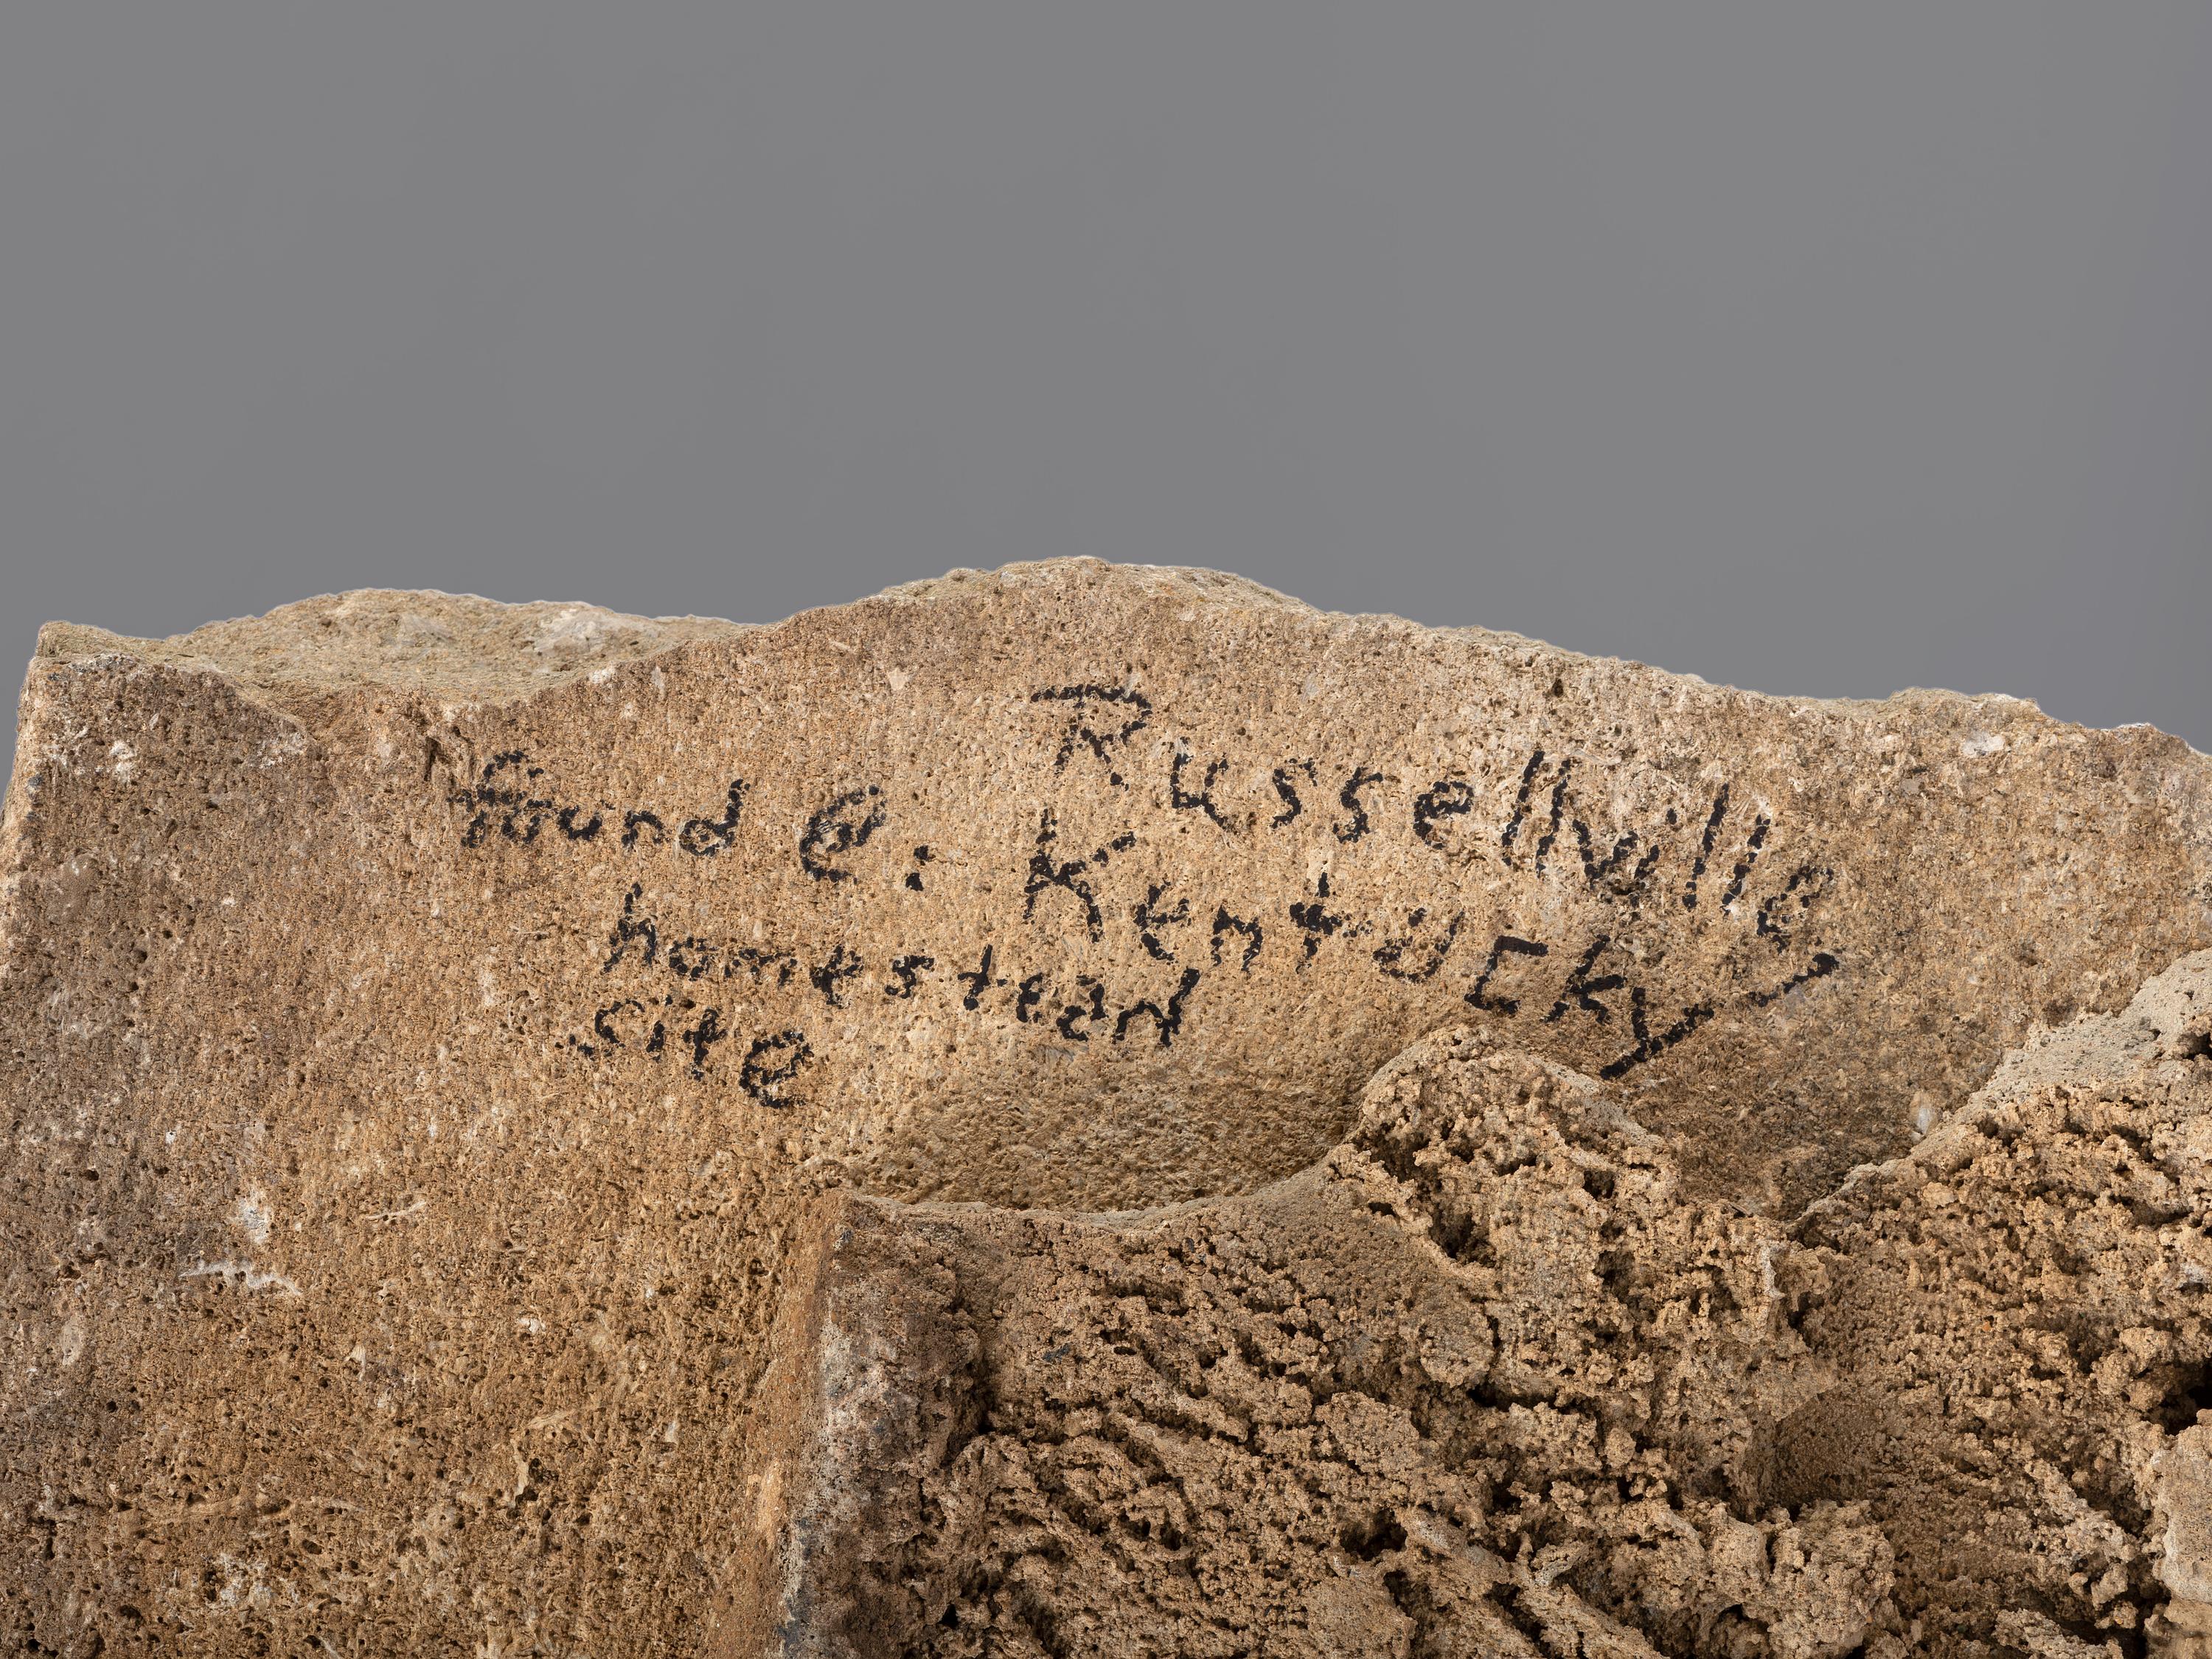 found @: Russellville
Kentucky -
homestead
site